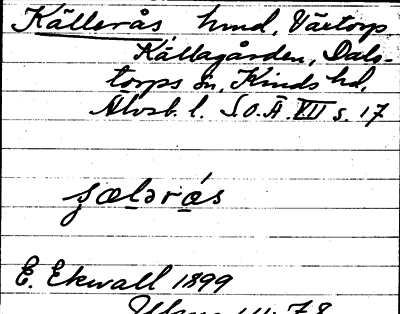 Källerås, hmd, Värtorp
Källagården, Dals-
torps sn, Kinds hd,
Älvsb. l. S.O.Ä. VII s. 17
E. Ekwall 1899